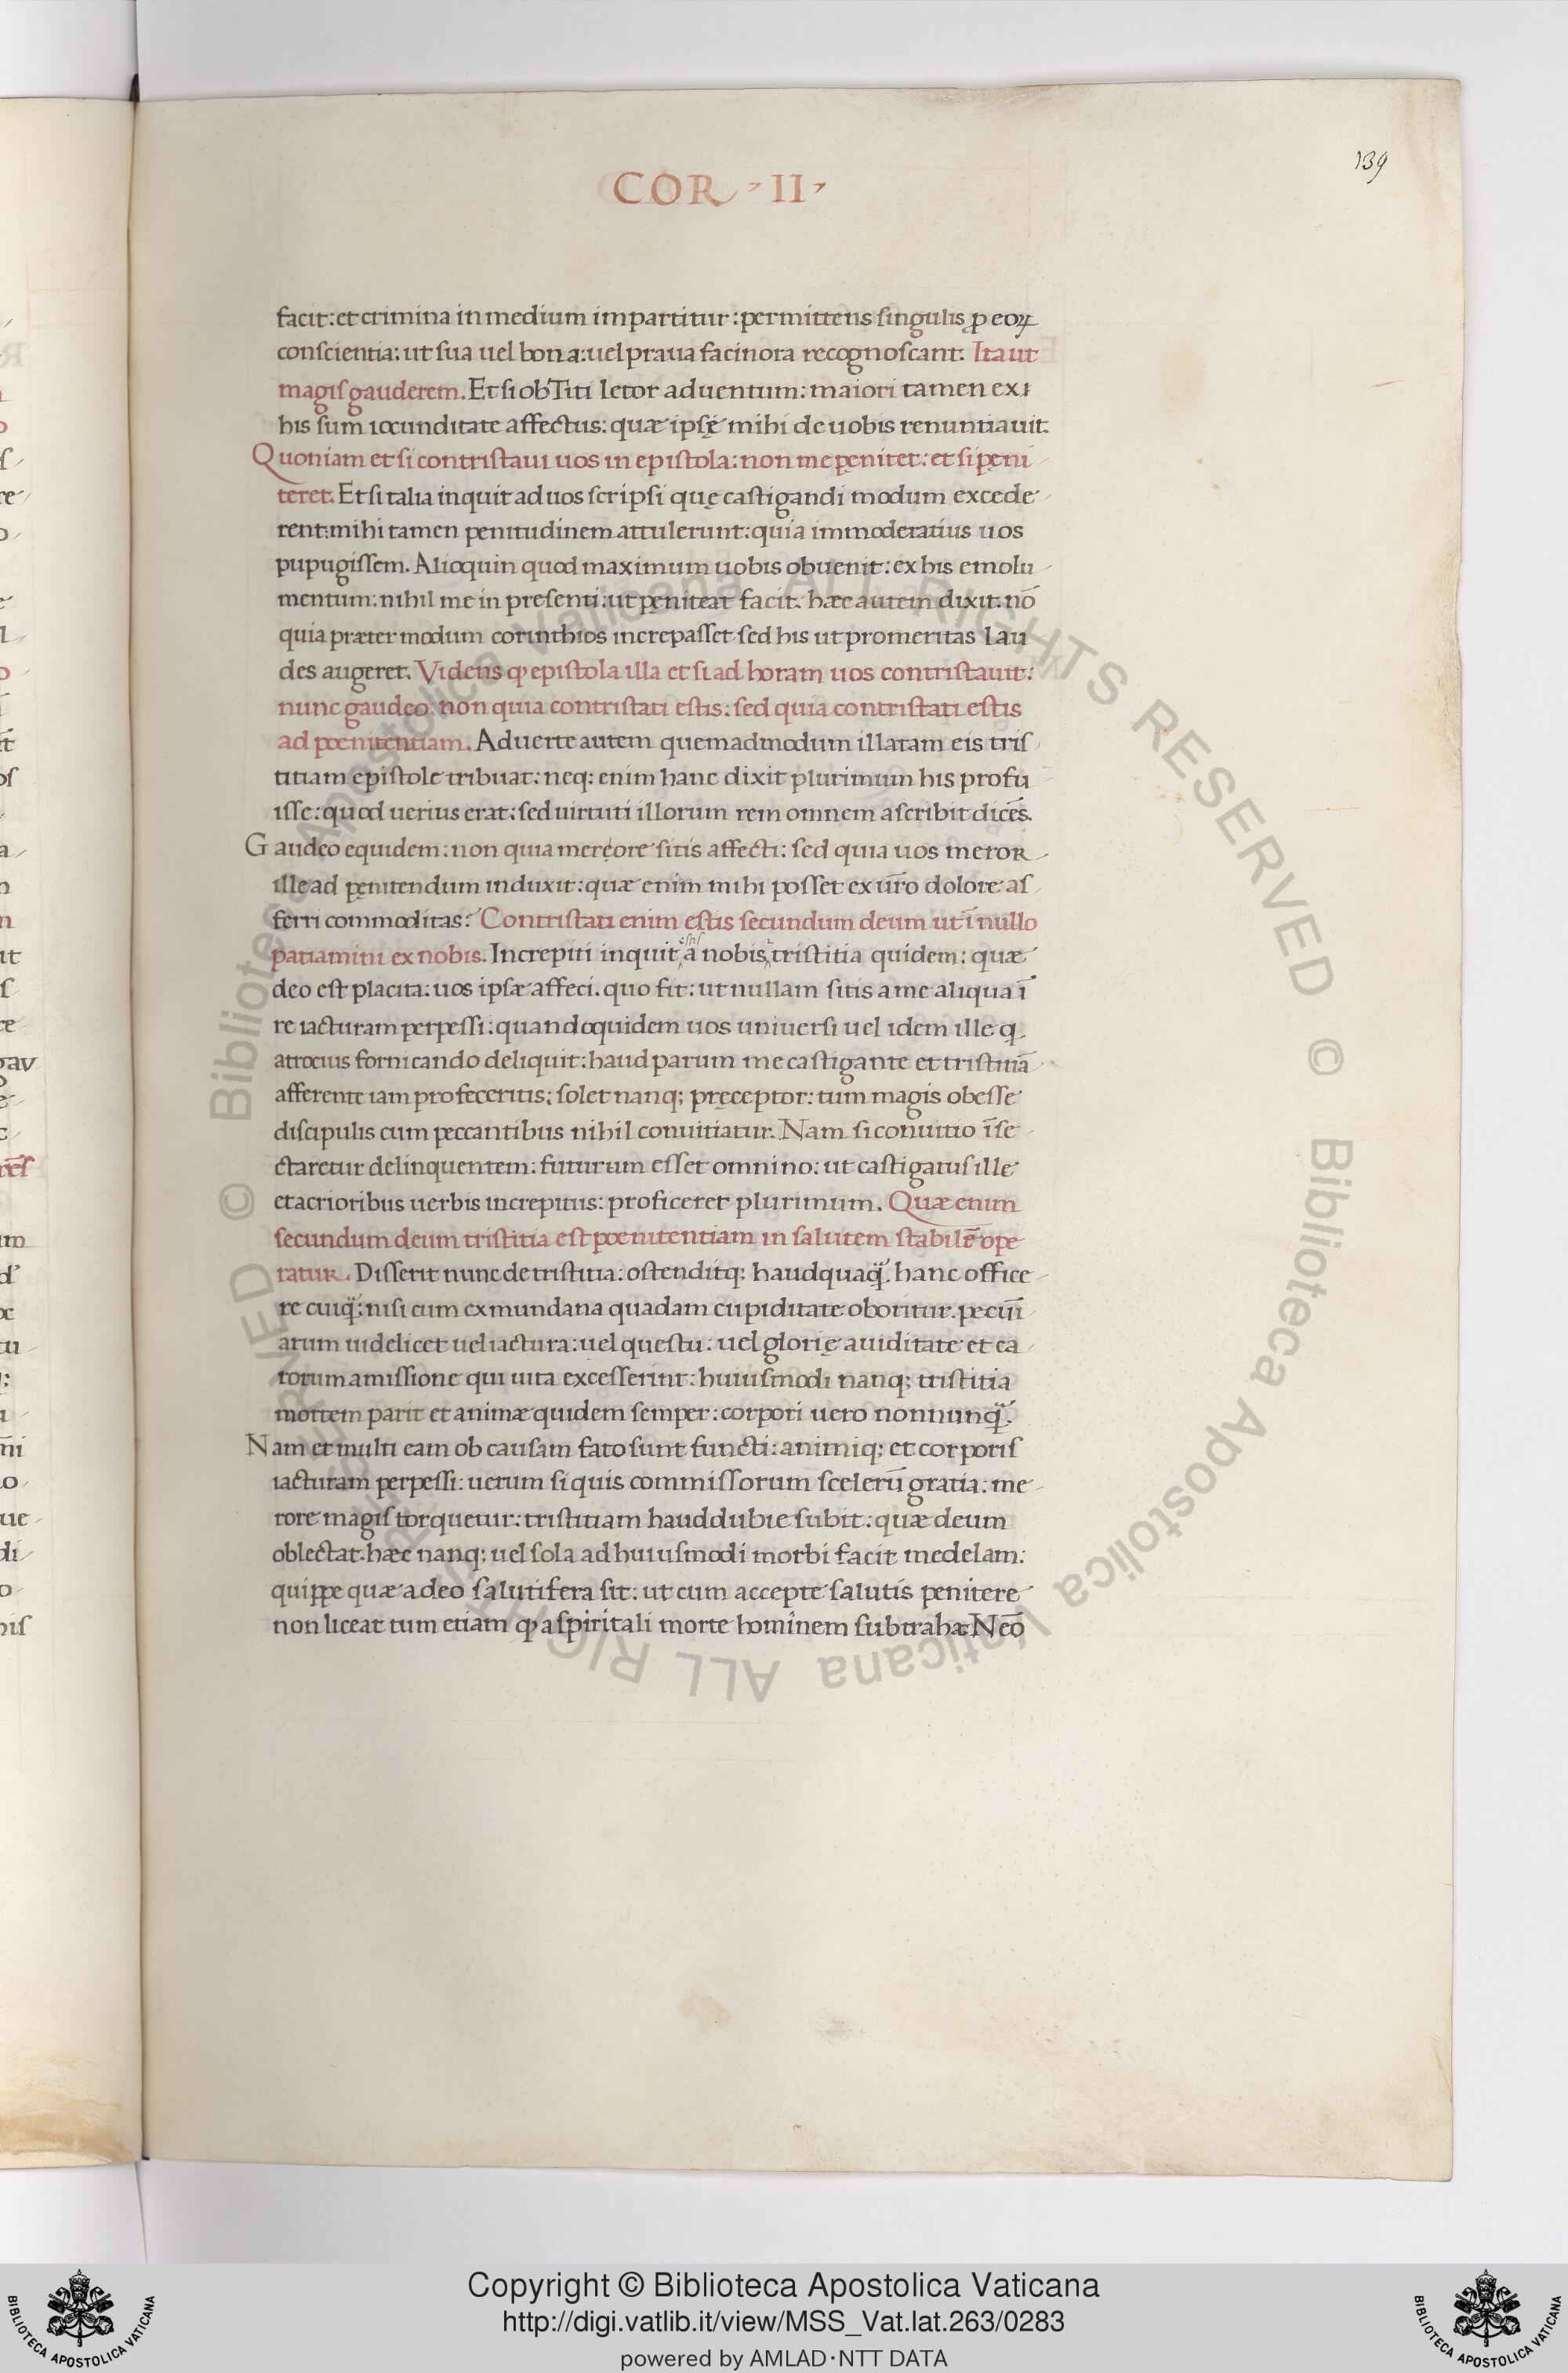 139
COR · II ·
facit: et crimina in medium impartitur: permittens singulis ꝓ eoꝝ
conscientia: ut sua uel bona: uel praua facinora recognoscant. Ita ut
magis gauderem. Et si ob Titi letor aduentum: maiori tamen ex
his sum iocunditate affectus: quæ ipsę mihi de uobis renuntiauit.
Quoniam et si contristaui uos in epistola: non me pęnitet: et si pęni
teret. Et si talia inquit ad uos scripsi quę castigandi modum excede
rent: mihi tamen penitudinem attulerunt: quia immoderatius uos
pupugissem. Alioquin quod maximum uobis obuenit: ex his emolu
mentum: nihil me in presenti: ut pęniteat facit. hæc autem dixit. nō
quia præter modum corinthios increpasset sed his ut promeritas lau
des augeret. Videns ꝙ epistola illa et si ad horam uos contristauit:
nunc gaudeo. non quia contristati estis: sed quia contristati estis
ad poenitentiam. Aduerte autem quemadmodum illatam eis tris
titiam epistole tribuat: neq; enim hanc dixit plurimum his profu
isse: quod uerius erat: sed uirtuti illorum rem omnem ascribit dicēs.
Gaudeo equidem: non quia merore sitis affecti: sed quia uos meror
ille ad pęnitendum induxit: quæ enim mihi posset ex ur̄o dolore af
ferri commoditas? Contristati enim estis secundum deum ut ī nullo
patiamini ex nobis. Increpiti inquit a nobis tristitia quidem: quæ
deo est placita: uos ipsæ affeci. quo fit: ut nullam sitis a me aliqua ī
re iacturam perpessi: quandoquidem uos uniuersi uel idem ille q
atrocius fornicando deliquit: haud parum me castigante et tristitiā
afferente iam profeceritis: solet nanq; pręceptor: tum magis obesse
discipulis cum peccantibus nihil conuitiatur. Nam si conuitio īse
ctaretur delinquentem: futurum esset omnino: ut castigatus ille
et acrioribus uerbis increpitus: proficeret plurimum. Quæ enim
secundum deum tristitia est poenitentiam in salutem stabilē ope
ratur. Disserit nunc de tristitia: ostenditq; haudquaq̈. hanc office
re cuiq̈: nisi cum ex mundana quadam cupiditate oboritur. pecuī
arum uidelicet uel iactura: uel questu: uel glorię auiditate et ea
rorum amissione qui uita excesserint: huiusmodi nanq; tristitia
mortem parit et animæ quidem semper: corpori uero nonnunq̈.
Nam et multi eam ob causam fato sunt functi: animiq; et corporis
iacturam perpessi: uerum si quis commissorum scelerū gratia: me
rore magis torquetur: tristitiam haud dubie subit: quæ deum
oblectat. hæc nanq; uel sola ad huiusmodi morbi facit medelam:
quippe quæ adeo salutifera sit: ut cum accepte salutis penitere
non liceat tum etiam ꝙ a spiritali morte hominem subtrahat Neō
Copyright © Biblioteca Apostolica Vaticana
http://digi.vatlib.it/view/MSS_Vat.lat.263/0283
powered by AMLAD·NTT DATA
BIBLIOTECA APOSTOLICA VATICANA
BIBLIOTECA APOSTOLICA VATICANA